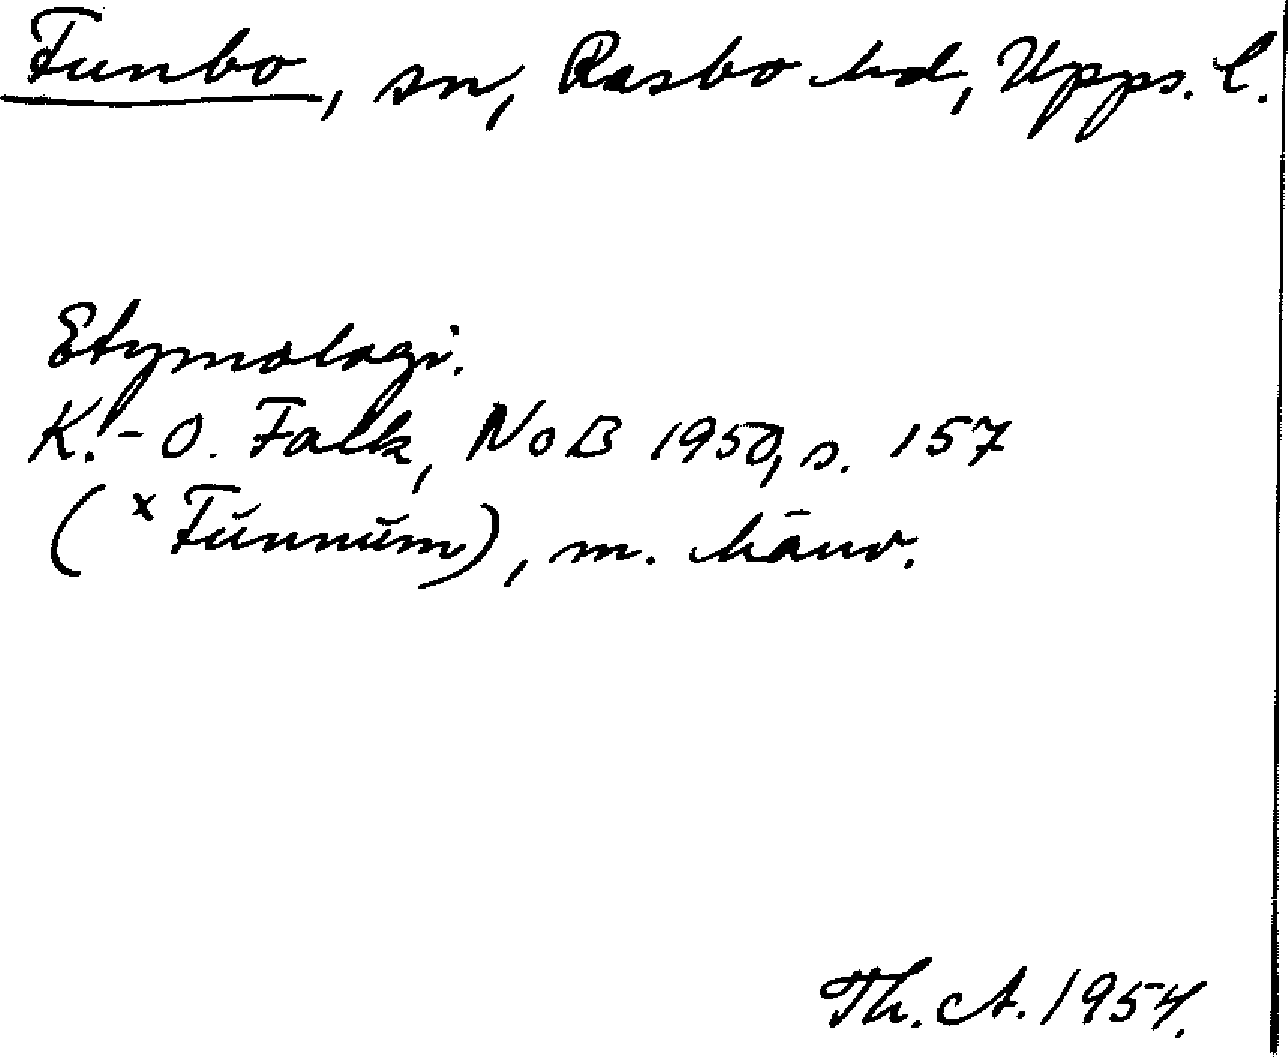 Funbo, sn, Rasbo hd, Upps. l.
Etymologi.
K.-O. Falk, NoB 1950, s. 157
(ˣFunnum), m. hänv.
Th. A. 1954.